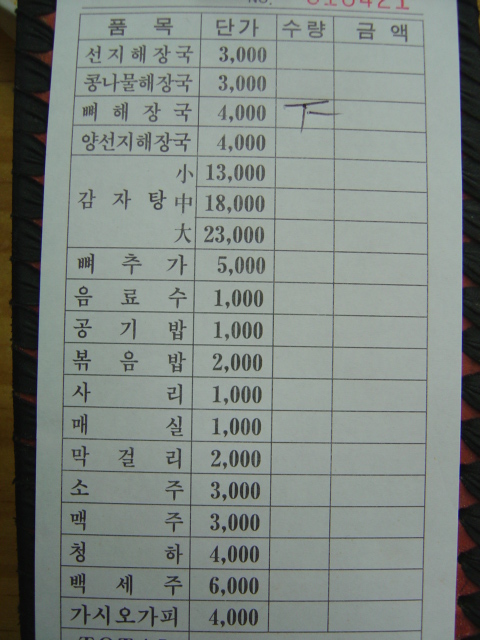 NO. 018421
품 목 단가 수량 금 액
선지해장국 3,000
콩나물해장국 3,000
뼈해장국 4,000
양선지해장국 4,000
감자탕 小 13,000
中 18,000
大 23,000
뼈추가 5,000
음료수 1,000
공기밥 1,000
볶음밥 2,000
사리 1,000
매실 1,000
막걸리 2,000
소주 3,000
맥주 3,000
청하 4,000
백세주 6,000
가시오가피 4,000